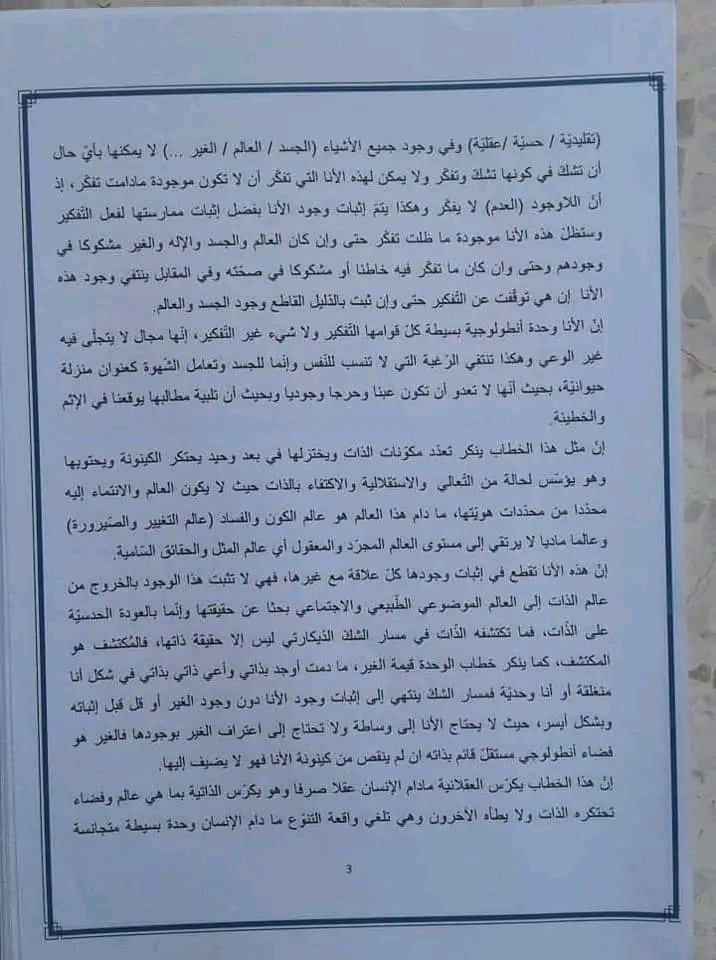 (تقليديّة / حسيّة /عقليّة) وفي وجود جميع الأشياء (الجسد / العالم / الغير ...) لا يمكنها بأيّ حال
أن تشكّ في كونها تشكّ وتفكّر ولا يمكن لهذه الأنا التي تفكّر أن لا تكون موجودة مادامت تفكّر، إذ
أنّ اللاوجود (العدم) لا يفكّر وهكذا يتمّ إثبات وجود الأنا بفضل إثبات ممارستها لفعل التّفكير
وستظلّ هذه الأنا موجودة ما ظلت تفكّر حتى وإن كان العالم والجسد والإله والغير مشكوكا في
وجودهم وحتى وان كان ما تفكّر فيه خاطئا أو مشكوكا في صحّته وفي المقابل ينتفي وجود هذه
الأنا إن هي توقّفت عن التّفكير حتى وإن ثبت بالدّليل القاطع وجود الجسد والعالم.
إنّ الأنا وحدة أنطولوجية بسيطة كلّ قوامها التّفكير ولا شيء غير التّفكير، إنّها مجال لا يتجلّى فيه
غير الوعي وهكذا تنتفي الرّغبة التي لا تنسب للنّفس وإنّما للجسد وتعامل الشّهوة كعنوان منزلة
حيوانيّة، بحيث أنّها لا تعدو أن تكون عبئا وحرجا وجوديا وبحيث أن تلبية مطالبها يوقعنا في الإثم
والخطيئة.
إنّ مثل هذا الخطاب ينكر تعدّد مكوّنات الذات ويختزلها في بعد وحيد يحتكر الكينونة ويحتويها
وهو يؤسّس لحالة من التّعالي والاستقلالية والاكتفاء بالذات حيث لا يكون العالم والانتماء إليه
محدّدا من محدّدات هويّتها، ما دام هذا العالم هو عالم الكون والفساد (عالم التغيير والصّيرورة)
وعالما ماديا لا يرتقي إلى مستوى العالم المجرّد والمعقول أي عالم المثل والحقائق السّامية.
إنّ هذه الأنا تقطع في إثبات وجودها كلّ علاقة مع غيرها، فهي لا تثبت هذا الوجود بالخروج من
عالم الذات إلى العالم الموضوعي الطّبيعي والاجتماعي بحثا عن حقيقتها وإنّما بالعودة الحدسيّة
على الذّات، فما تكتشفه الذّات في مسار الشكّ الدّيكارتي ليس إلا حقيقة ذاتها، فالمُكتشف هو
المكتشف، كما ينكر خطاب الوحدة قيمة الغير، ما دمت أوجد بذاتي وأعي ذاتي بذاتي في شكل أنا
منغلقة أو أنا وحديّة فمسار الشكّ ينتهي إلى إثبات وجود الأنا دون وجود الغير أو قل قبل إثباته
وبشكل أيسر، حيث لا يحتاج الأنا إلى وساطة ولا تحتاج إلى اعتراف الغير بوجودها فالغير هو
فضاء أنطولوجي مستقلّ قائم بذاته ان لم ينقص من كينونة الأنا فهو لا يضيف إليها.
إنّ هذا الخطاب يكرّس العقلانية مادام الإنسان عقلا صرفا وهو يكرّس الذاتية بما هي عالم وفضاء
تحتكره الذات ولا يطأه الآخرون وهي تلغي واقعة التنوّع ما دام الإنسان وحدة بسيطة متجانسة
3